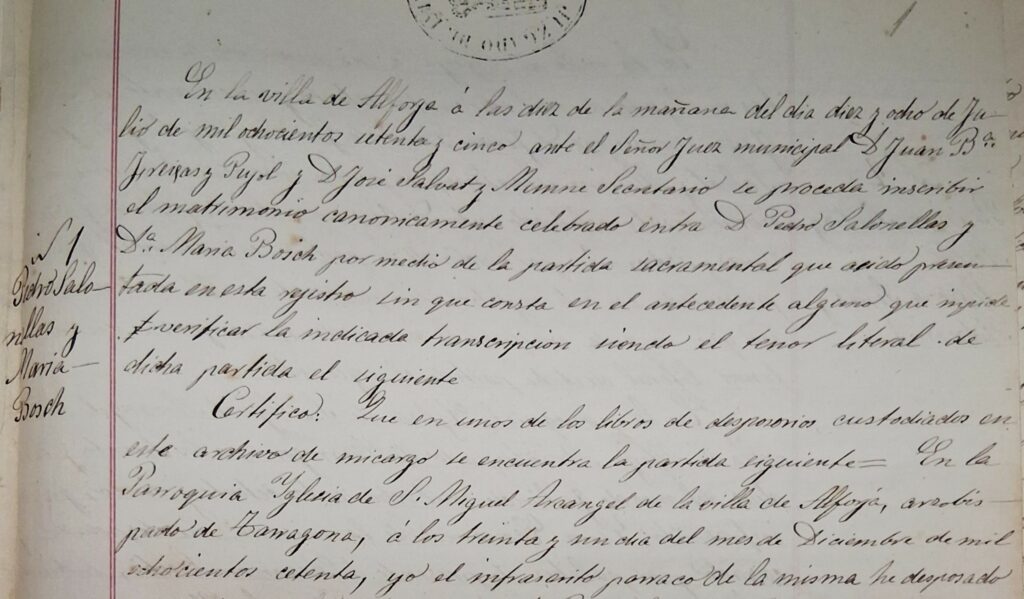 1
En la villa de Alforja á las diez de la mañana del dia diez y ocho de Ju-
lio de mil ochocientos setenta y cinco ante el Señor Juez municipal D Juan Bta
y Pujol y D José Salvat y Munne Secretario se procedia inscribir
el matrimonio canonicamente celebrado entra D Pedro Salonellas y
Da. Maria Bosch por medio de la partida sacramental que asido presen-
tada en esta registro sin que consta en el antecedente alguno que impida
verificar la indicada transcripcion siendo el tenor literal de
dicha partida el siguiente
Certifico: Que en unos de los libros de desposorios custodiados en
este archivo de micargo se encuentra la partida siguiente = En la
Parroquia Yglecia de S. Miguel Arcangel de la villa de Alforja, arzobis-
pado de Tarragona, á los treinta y un dia del mes de Diciembre de mil
ochocientos cetenta, yo el infrascrito parraco de la misma he desposado
1
Pedro Salo-
nellas y
Maria
Bosch